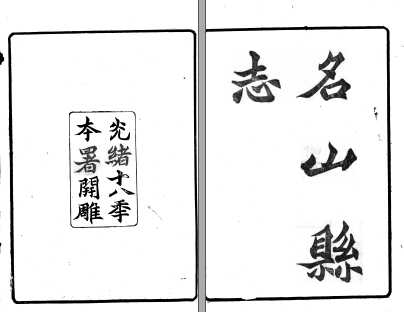 名山縣
志
光緒十八年
本署開雕